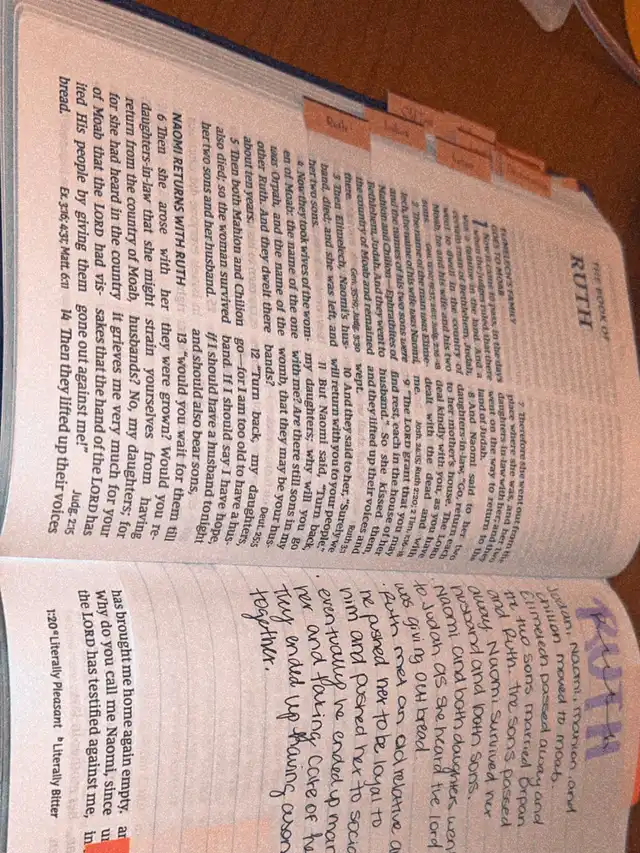 THE BOOK OF
RUTH
ELIMELECH'S FAMILY
GOES TO MOAB
1 Now it came to pass, in the days
when the judges ruled, that there
was a famine in the land. And a
certain man of Bethlehem, Judah,
went to dwell in the country of
Moab, he and his wife and his two
sons.
2 The name of the man was Elime-
lech, the name of his wife was Naomi,
and the names of his two sons were
Mahlon and Chilion—Ephrathites of
Bethlehem, Judah. And they went to
the country of Moab and remained
there. Gen. 35:19; Judg. 3:30
3 Then Elimelech, Naomi's hus-
band, died; and she was left, and
her two sons.
4 Now they took wives of the wom-
en of Moab: the name of the one
was Orpah, and the name of the
other Ruth. And they dwelt there
about ten years.
5 Then both Mahlon and Chilion
also died; so the woman survived
her two sons and her husband.
NAOMI RETURNS WITH RUTH
6 Then she arose with her
daughters-in-law that she might
return from the country of Moab,
for she had heard in the country
of Moab that the LORD had vis-
ited His people by giving them
bread. Ex. 3:16; 4:31; Matt. 6:11
7 Therefore she went out from the
place where she was, and her two
daughters-in-law with her; and they
went on the way to return to the
land of Judah.
8 And Naomi said to her two
daughters-in-law, "Go, return each
to her mother's house. The LORD
deal kindly with you, as you have
dealt with the dead and with
me.
9 "The LORD grant that you may
find rest, each in the house of her
husband." So she kissed them,
and they lifted up their voices and
wept.
10 And they said to her, "Surely we
will return with you to your people."
11 But Naomi said, "Turn back,
my daughters; why will you go
with me? Are there still sons in my
womb, that they may be your hus-
bands? Deut. 25:5
12 "Turn back, my daughters,
go—for I am too old to have a hus-
band. If I should say I have hope,
if I should have a husband tonight
and should also bear sons,
13 "would you wait for them till
they were grown? Would you re-
strain yourselves from having
husbands? No, my daughters; for
it grieves me very much for your
sakes that the hand of the LORD has
gone out against me!" Judg. 2:15
14 Then they lifted up their voices
Ruth
RUTH
Judah, Naomi, mahlon and
chilion moved to moab.
Elimelech passed away and
the two sons married Orpah
and Ruth. the sons passed
away. Naomi survived her
husband and both sons.
Naomi and both daughters went
to Judah as she heard the lord
was giving out bread.
Ruth met an old relative
he pushed her to be loyal to
him and pushed her to
eventually he ended up
her and taking care of
They ended up having
together.
has brought me home again empty.
Why do you call me Naomi, since
the LORD has testified against me,
1:20 a Literally Pleasant b Literally Bitter